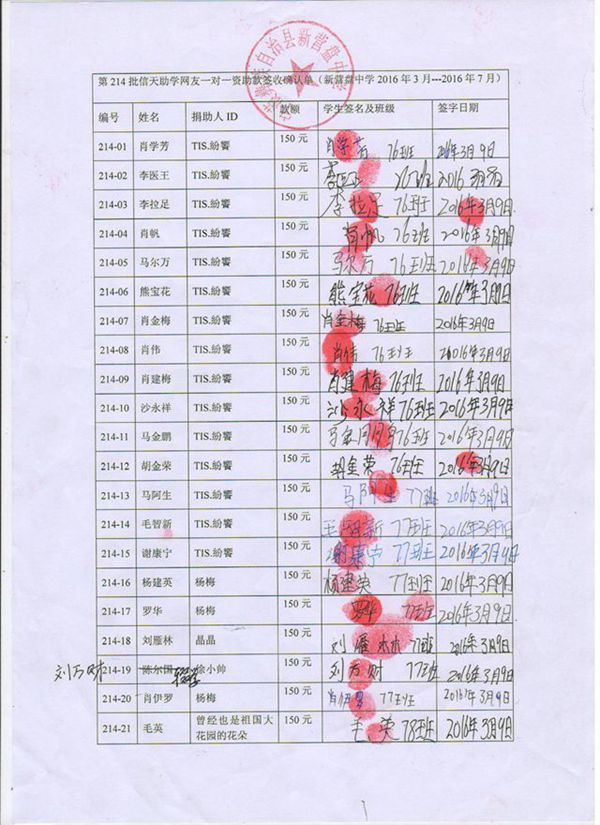 自治县新营盘中学
第 214 批信天助学网友一对一资助款签收确认单（新营盘中学 2016 年 3 月---2016 年 7 月）
编号 姓名 捐助人 ID 款额 学生签名及班级 签字日期
214-01 肖学芳 TIS.纷饗 150 元 肖学芳 76班 2016年3月9日
214-02 李医王 TIS.纷饗 150 元 李医王 76班 2016 3月9日
214-03 李拉足 TIS.纷饗 150 元 李拉足 76班 2016年3月9日
214-04 肖帆 TIS.纷饗 150 元 肖帆 76班 2016年3月9日
214-05 马尔万 TIS.纷饗 150 元 马尔万 76班 2016年3月9日
214-06 熊宝花 TIS.纷饗 150 元 熊宝花 76班 2016年3月9日
214-07 肖金梅 TIS.纷饗 150 元 肖金梅 76班 2016年3月9日
214-08 肖伟 TIS.纷饗 150 元 肖伟 76班 2016年3月9日
214-09 肖建梅 TIS.纷饗 150 元 肖建梅 76班 2016年3月9日
214-10 沙永祥 TIS.纷饗 150 元 沙永祥 76班 2016年3月9日
214-11 马金鹏 TIS.纷饗 150 元 马金鹏 76班 2016年3月9日
214-12 胡金荣 TIS.纷饗 150 元 胡金荣 76班 2016年3月9日
214-13 马阿生 TIS.纷饗 150 元 马阿生 77班 2016年3月9日
214-14 毛智新 TIS.纷饗 150 元 毛智新 77班 2016年3月9日
214-15 谢康宁 TIS.纷饗 150 元 谢康宁 77班 2016年3月9日
214-16 杨建英 杨梅 150 元 杨建英 77班 2016年3月9日
214-17 罗华 杨梅 150 元 罗华 77班 2016年3月9日
214-18 刘雁林 晶晶 150 元 刘雁林 77班 2016年3月9日
刘万财 214-19 陈尔国 徐小帅 150 元 刘万财 77班 2016年3月9日
214-20 肖伊罗 杨梅 150 元 肖伊罗 77班 2016年3月9日
214-21 毛英 曾经也是祖国大 150 元 毛英 78班 2016年3月9日
花园的花朵